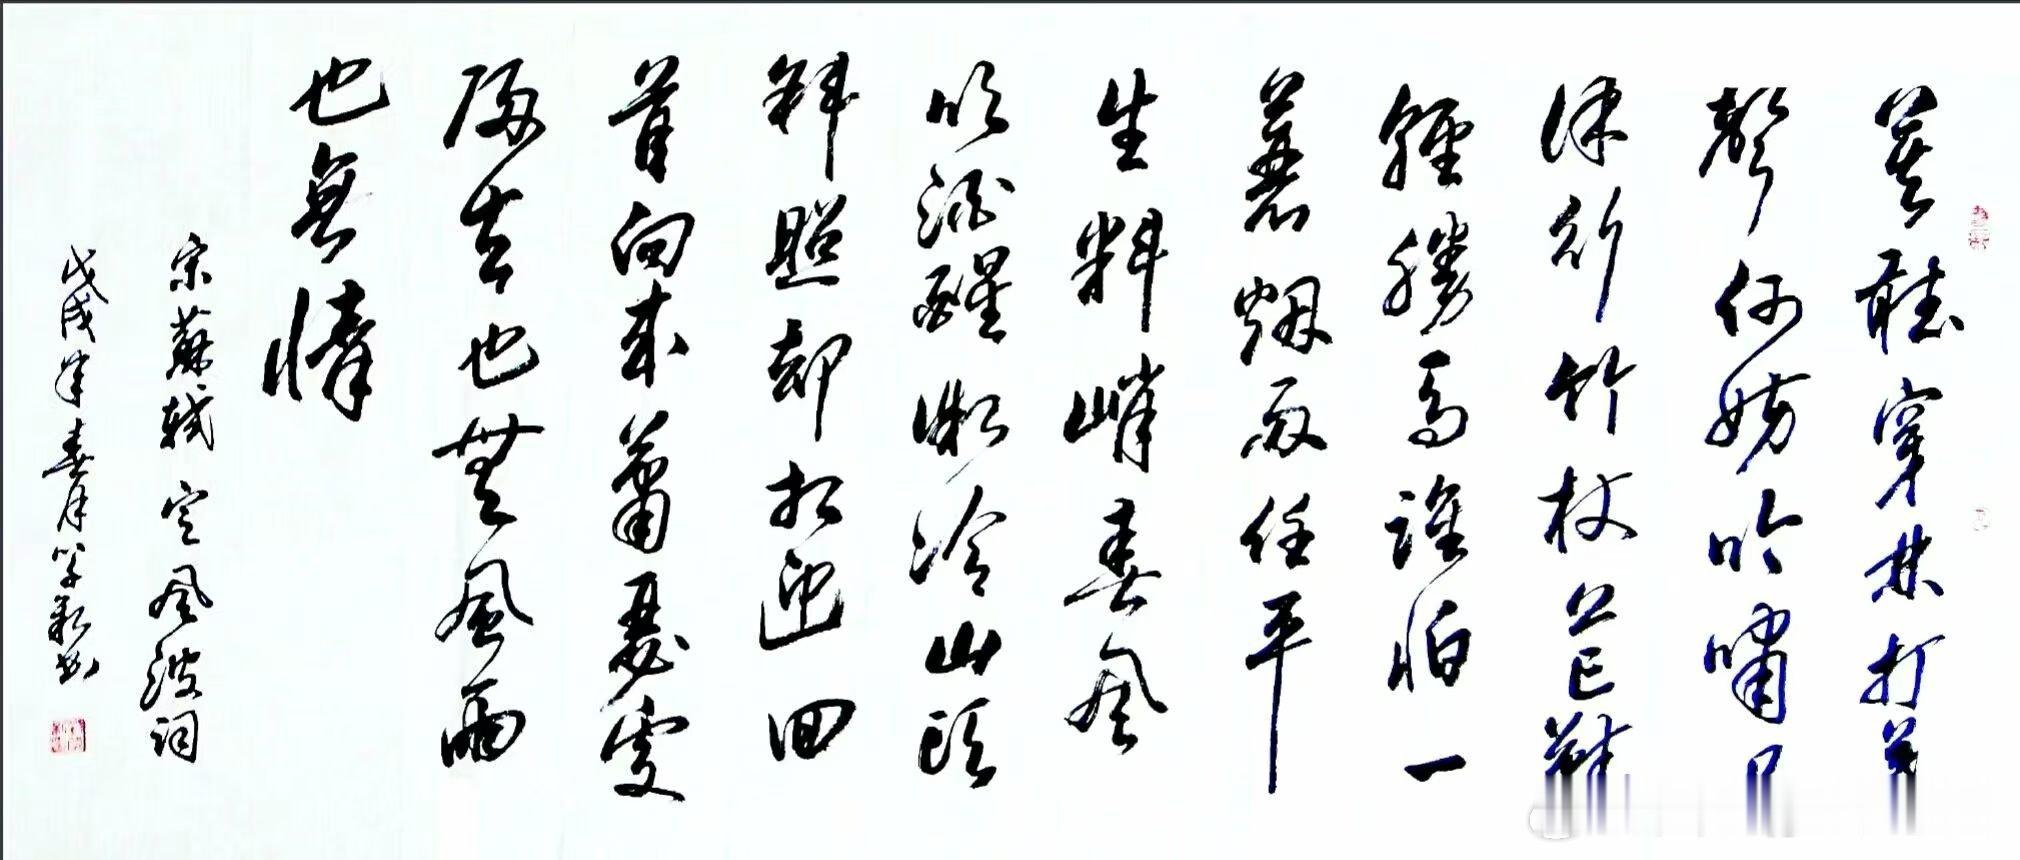 莫聽穿林打葉
聲何妨吟嘯且
徐行竹杖芒鞋
輕勝馬誰怕一
蓑烟雨任平
生料峭春風
吹酒醒微冷山頭
斜照却相迎回
首向來蕭瑟處
歸去也無風雨
也無情
宋蘇軾定風波詞
戊戌年春月書